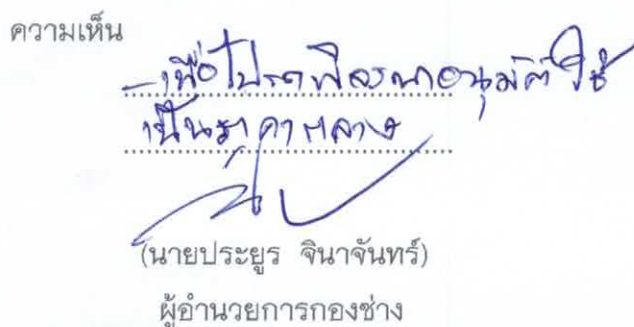 ความเห็น
- เพื่อโปรดพิจารณาอนุมัติใช้
เป็นราคากลาง
(นายประยูร จินาจันทร์)
ผู้อำนวยการกองช่าง